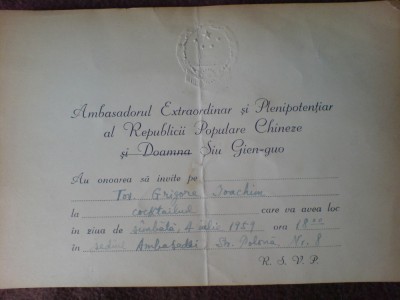 Ambasadorul Extraordinar și Plenipotențiar
al Republicii Populare Chineze
și Doamna Siu Gien-guo
Au onoarea să invite pe
Tov. Grigore Ioachim
la cocktailul care va avea loc
în ziua de sîmbătă, 4 iulie 1959 ora 18
în sediul Ambasadei, Str. Polonă Nr. 8
R. S. V. P.